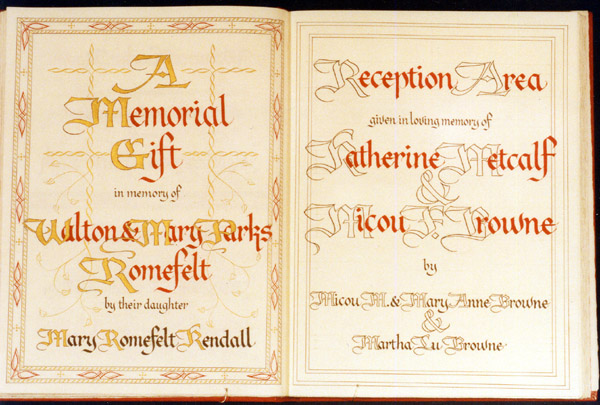 A
Memorial
Gift
in memory of
Walton & Mary Parks
Romefelt
by their daughter
Mary Romefelt Kendall
Reception Area
given in loving memory of
Katherine Metcalf
&
Micou F. Browne
by
Micou M. & Mary Anne Browne
&
Martha Lu Browne